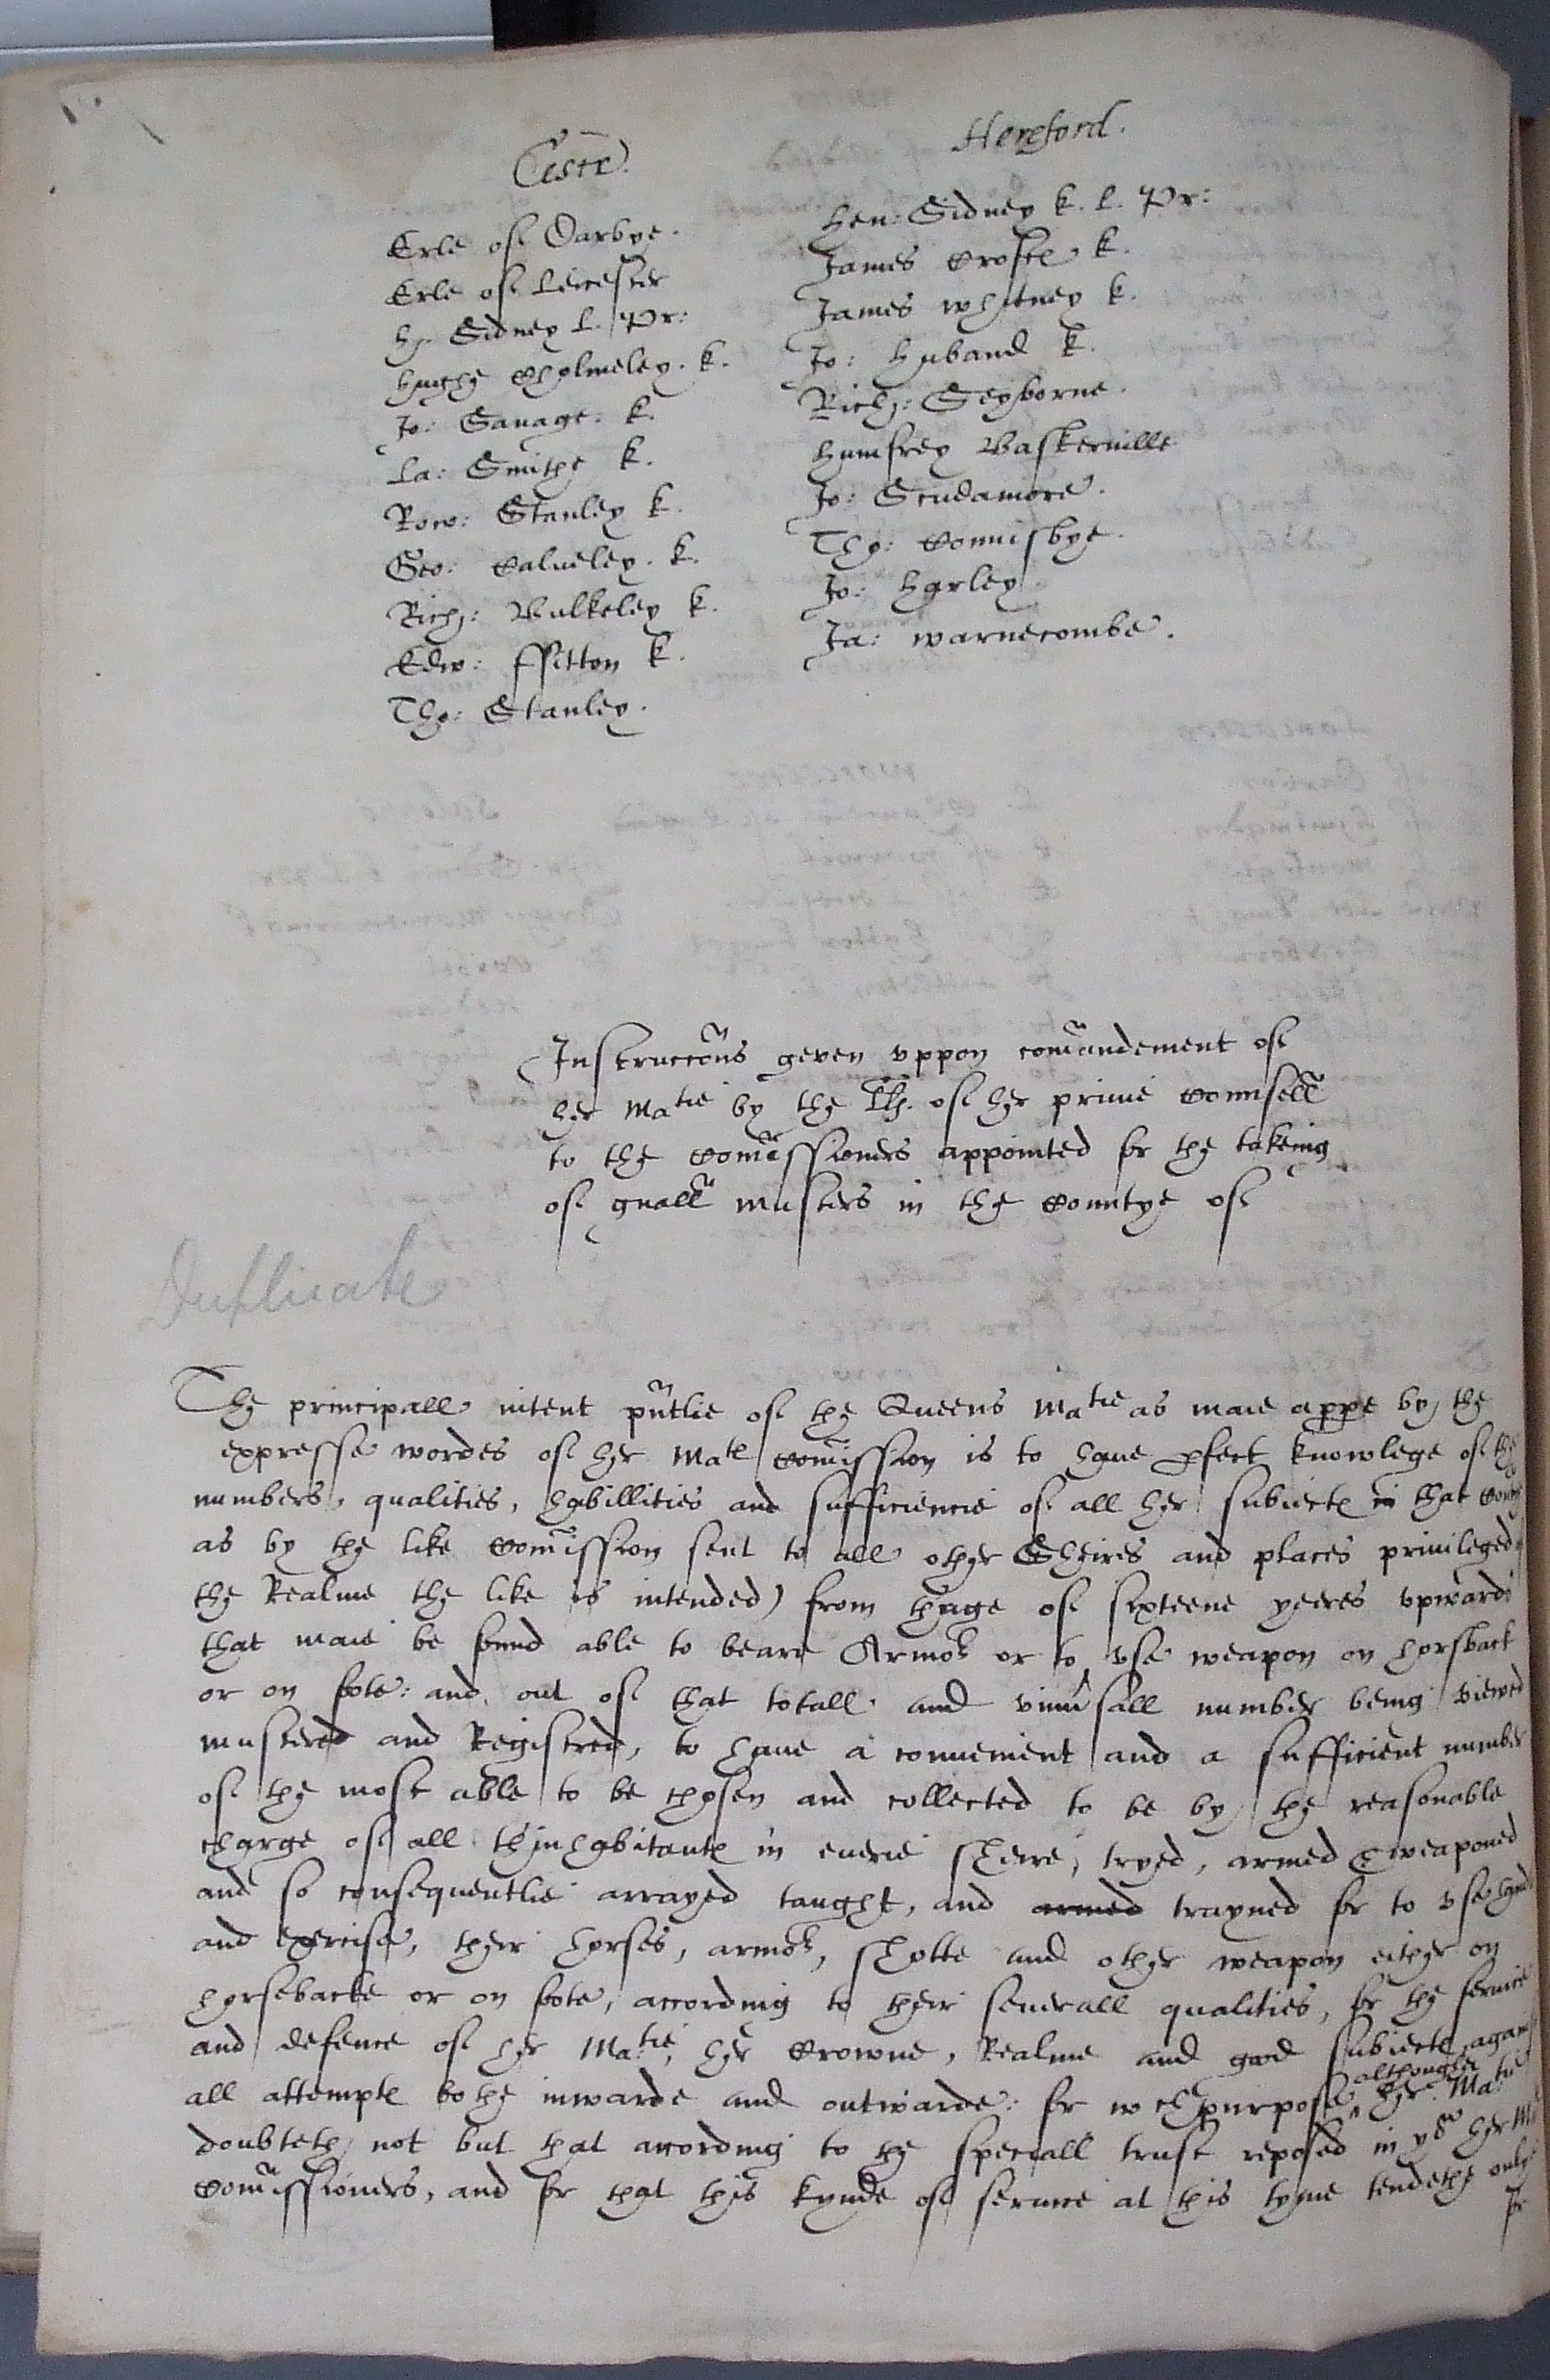 Cestr.
Erle of Darbye.
Erle of Leicester
H. Sidney L. Pr:
Hughe Cholmeley. k.
Jo: Sauage. k.
La: Smithe k.
Row: Stanley k.
Geo: Calueley. k.
Rich: Bulkeley k.
Edw: ffitton k.
Tho: Stanley.
Hereford.
Hen: Sidney k. L. Pr:
James Crofte k.
James Whitney k.
Jo: Huband k.
Rich: Seyborne.
Humfrey Baskeruille
Jo: Scudamore.
Tho: Connisbye.
Jo: Harley
Ja: Warnecombe.
Instruccons geven vppon comandement of
her Matie by the LL. of her priuie Counsell
to the Comissioners appointed for the takeing
of gnall musters in the Countye of
Duplicate
The principall intent pntlie of the Queens Matie as maie appe by the
expresse wordes of her Mate Comission is to haue pfect knowlege of the
numbers, qualities, habillities and sufficiencie of all her subiectes in that
as by the like Comission sent to all other Sheires and places priuileged
the Realme the like is intended) from thage of sixteene yeeres vpwards
that maie be found able to beare Armor or to vse weapon on horsback
or on foote: and out of that totall and vniusall number being viewed
mustered and Registred, to haue a convenient and a sufficient number
of the most able to be chosen and collected to be by the reasonable
charge of all thinhabitantes in euerie sheire, tryed, armed & weaponed
and so consequentlie arrayed taught, and armed trayned for to vse
and exercise, their horses, armor, shotte and other weapon either on
horsebacke or on foote, according to their seuerall qualities, for the seruice
and defence of her Matie, her Crowne, Realme and good subiectes against
all attemptes bothe inwarde and outwarde: for wch purpose, although her Matie
doubteth not but that according to the speciall trust reposed in you her
Comissioners, and for that this kynde of seruice at this tyme tendethe onlye
for